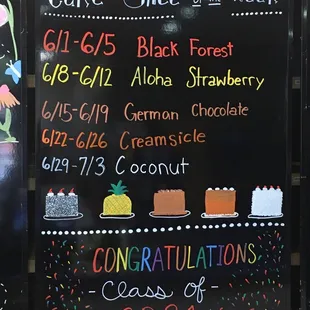 Cake Slice of the Week
6/1-6/5 Black Forest
6/8-6/12 Aloha Strawberry
6/15-6/19 German Chocolate
6/22-6/26 Creamsicle
6/29-7/3 Coconut
CONGRATULATIONS
- Class of -